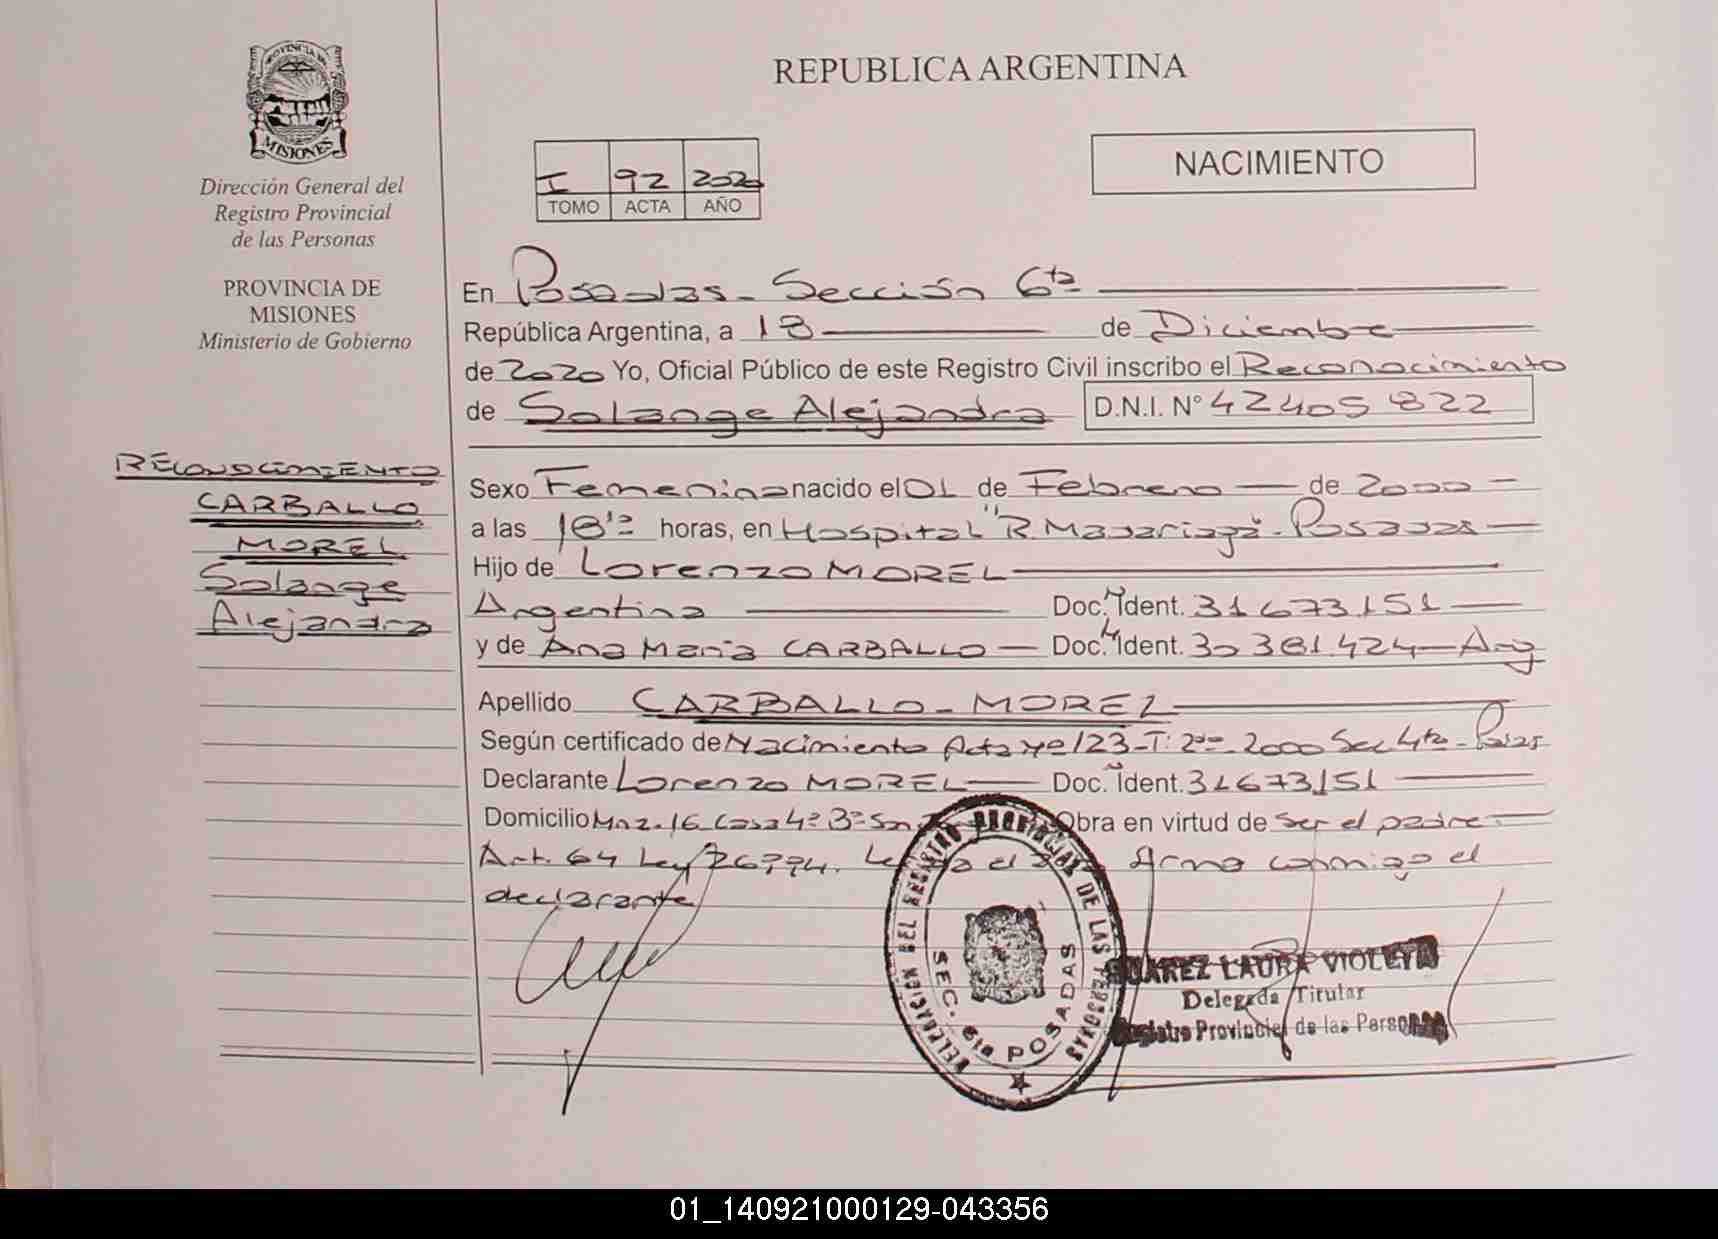 PROVINCIA DE
MISIONES
Dirección General del
Registro Provincial
de las Personas
PROVINCIA DE
MISIONES
Ministerio de Gobierno
RECONOCIMIENTO
CARBALLO
MOREL
Solange
Alejandra
REPUBLICA ARGENTINA
I 92 2020
TOMO ACTA AÑO
NACIMIENTO
En Posadas - Sección 6ta
República Argentina, a 18 de Diciembre
de 2020 Yo, Oficial Público de este Registro Civil inscribo el Reconocimiento
de Solange Alejandra D.N.I. N° 42405822
Sexo Femenino nacido el 01 de Febrero de 2000
a las 18 horas, en Hospital "R. Madariaga" - Posadas
Hijo de Lorenzo MOREL
Argentina Doc. Ident. 31673151
y de Ana María CARBALLO Doc. Ident. 30381.424 - Arg
Apellido CARBALLO - MOREL
Según certificado de Nacimiento Acta Nº 123 - T: 2000 Sec 4ta - Pdas
Declarante Lorenzo MOREL Doc. Ident. 31673151
Domicilio Mnz. 16 Casa 4 Obra en virtud de ser el padre
Art. 64 Ley 26994. Leída el firma conmigo el
declarante
DELEGACION DEL REGISTRO PROVINCIAL DE LAS PERSONAS
SEC. 6ta POSADAS
SUAREZ LAURA VIOLETA
Delegada Titular
Registro Provincial de las Personas
01_140921000129-043356